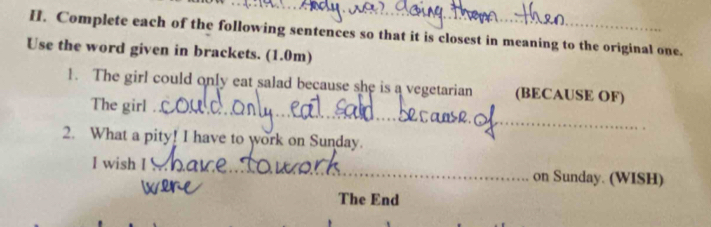 Andy was doing them then
II. Complete each of the following sentences so that it is closest in meaning to the original one.
Use the word given in brackets. (1.0m)
1. The girl could only eat salad because she is a vegetarian (BECAUSE OF)
The girl could only eat salad because of
2. What a pity! I have to work on Sunday.
I wish I have to work on Sunday. (WISH)
were
The End